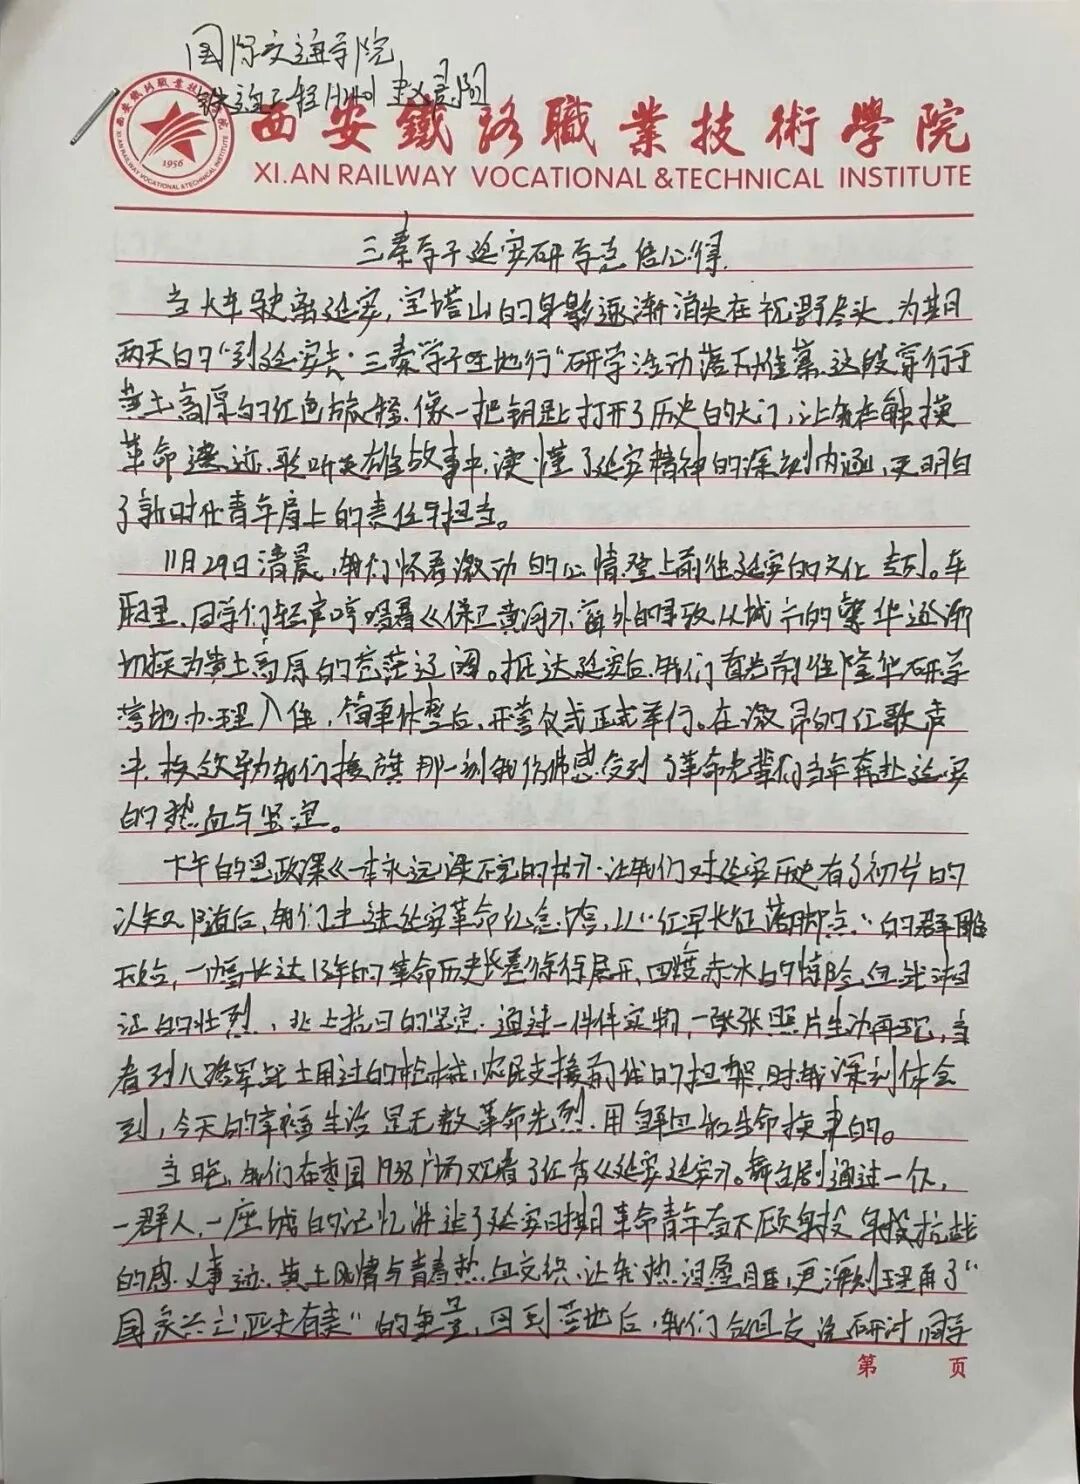 国际交通学院
铁道工程
西安鐵路職業技術學院
XI,AN RAILWAY VOCATIONAL &TECHNICAL INSTITUTE
西安鐵路職業技術學院
XI,AN RAILWAY VOCATIONAL &TECHNICAL INSTITUTE
1956
三秦学子延安研学总结心得.
当火车驶离延安,宝塔山的身影逐渐消失在视野尽头,为期
两天的"到延安去·三秦学子圣地行"研学活动落下帷幕,这段穿行于
黄土高原的红色旅程,像一把钥匙打开了历史的大门,让我在触摸
革命遗迹、聆听英雄故事中,读懂了延安精神的深刻内涵,更明白
了新时代青年肩上的责任与担当。
11月29日清晨,我们怀着激动的心情登上前往延安的文化专列。车
厢里,同学们轻声哼唱着《保卫黄河》,窗外的景致从城市的繁华逐渐
切换为黄土高原的苍茫辽阔。抵达延安后,我们首先前往隆华研学
营地办理入住,简单休整后,开营仪式正式举行。在激昂的红歌声
中,校领导为我们授旗,那一刻我仿佛感受到了革命先辈们当年奔赴延安
的热血与坚定。
下午的思政课《一本永远读不完的书》,让我们对延安历史有了初步的
认知,随后,我们走进延安革命纪念馆,以"红军长征落脚点"的群雕
开始,一幅长达13年的革命历史长卷徐徐展开,四渡赤水的惊险,
的壮烈、北上抗日的坚定,通过一件件实物,一张张照片生动再现,当
看到八路军战士用过的枪械,农民支援前线的担架时,我深刻体会
到,今天的幸福生活是无数革命先烈用鲜血和生命换来的。
当晚,我们在枣园1938广场观看了红秀《延安延安》。舞台剧通过一个人,
一群人,一座城的记忆讲述了延安时期革命青年奋不顾身投身投抗战
的感人事迹,黄土风情与青春热血交织,让我热泪盈眶,更深刻理解了"
国家兴亡,匹夫有责"的重量,回到营地后,我们分组交流研讨,同学
第 页